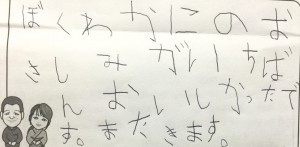 ぼくわかにのお
さしみがいちば
んおいしかったで
す。またきます。